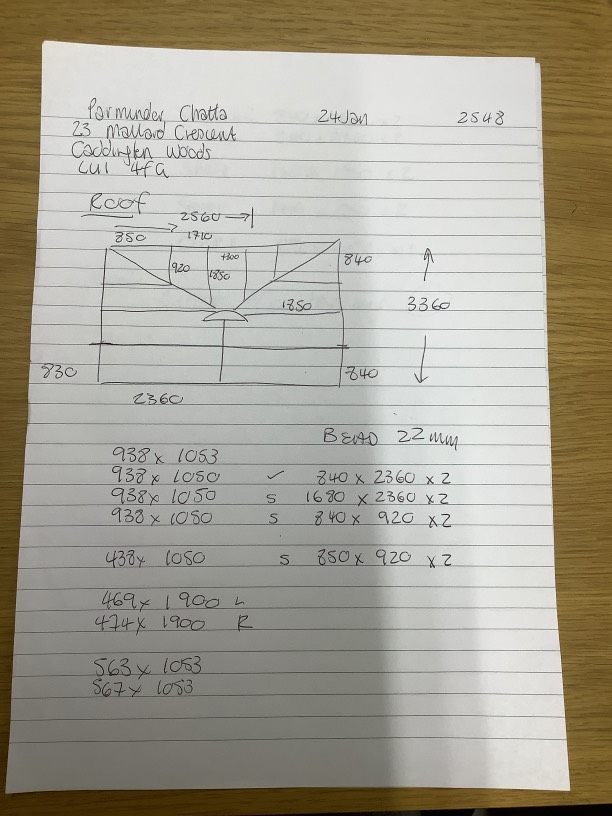 Parminder Chatta 24 Jan 2548
23 Mallard Crescent
Caddington Woods
LU1 4FG
Roof
2560
850 1710
920 1850 +300 840
1850 3360
830 840
2360
BEAD 22mm
938 x 1053
938 x 1050 ✓ 840 x 2360 x 2
938 x 1050 S 1680 x 2360 x 2
938 x 1050 S 840 x 920 x 2
438 x 1050 S 850 x 920 x 2
469 x 1900 L
474 x 1900 R
563 x 1053
567 x 1053